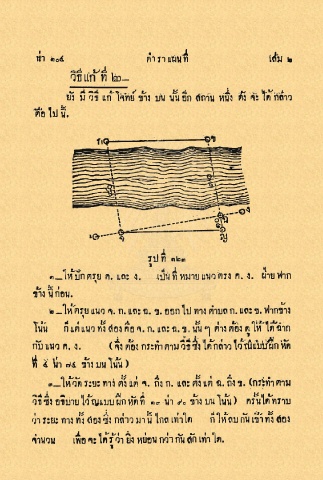 น่า ๒๐๔ ตำราแผนที่ เล่ม ๒
วิธีแก้ที่ ๒—
ยังมีวิธีแก้โจทย์ข้างบนนั้นอีกสถานหนึ่ง ดังจะได้กล่าว
ต่อไปนี้.
รูปที่ ๓๒๓
๑—ให้ปักตรุย ค. และ ง. เป็นที่หมายแนวตรง ค. ง. ฝ่ายฟาก
ข้างนี้ก่อน.
๒—ให้ตรุยแนว จ. ก. และ ฉ. ข. ออกไปทางตำบล ก. และ ข. ฟากข้าง
โน้น ก็แต่แนวทั้งสองคือ จ. ก. และ ฉ. ข. นั้นๆ ต่างต้องดูให้ได้ฉาก
กับแนว ค. ง. (พึ่งต้องกระทำตามวิธีซึ่งได้กล่าวไว้ณแบบฝึกหัด
ที่ ๕ น่า ๗๕ ข้างบนโน้น)
๓—ให้วัดระยะทางตั้งแต่ จ. ถึง ก. และตั้งแต่ ฉ. ถึง ข. (กระทำตาม
วิธีซึ่งอธิบายไว้ณแบบฝึกหัดที่ ๑๓ น่า ๙๐ ข้างบนโน้น) ครั้นได้ทราบ
ว่าระยะทางทั้งสองซึ่งกล่าวมานี้ไกลเท่าใด ก็ให้ลบกันเข้าทั้งสอง
จำนวน เพื่อจะได้รู้ว่ายิ่งหย่อนกว่ากันสักเท่าใด.